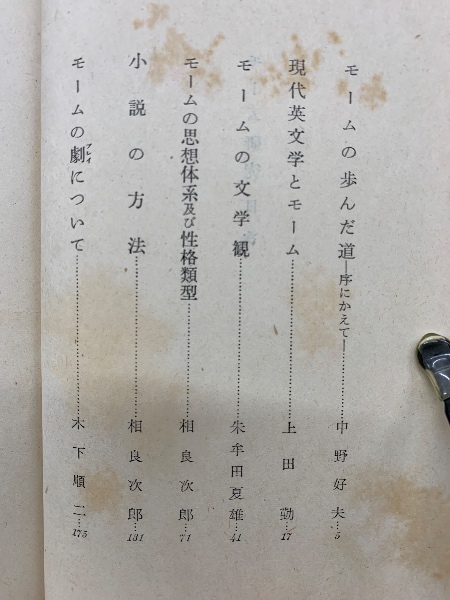 モームの歩んだ道―序にかえて―……中野好夫…5
現代英文学とモーム……上田勤…17
モームの文学観……朱牟田夏雄…41
モームの思想体系及び性格類型……相良次郎…71
小説の方法……相良次郎…131
モームの劇プレイについて……木下順二…175